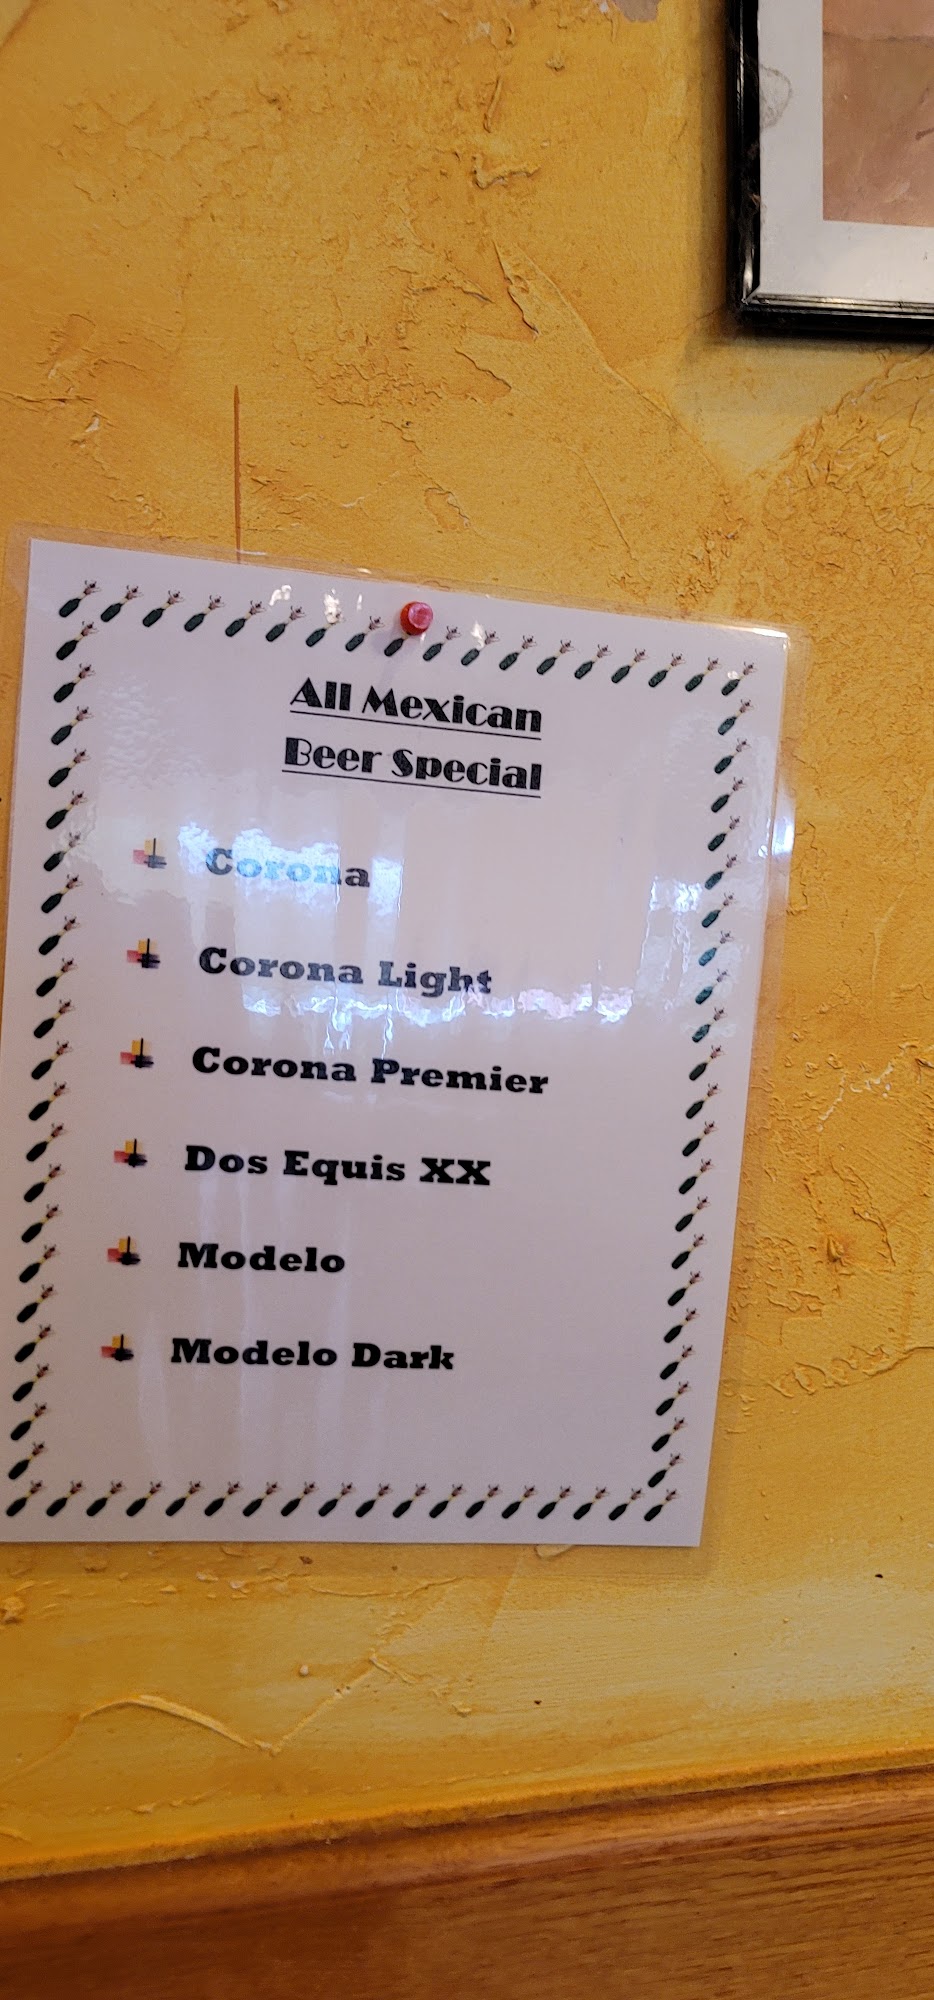 All Mexican
Beer Special
Corona
Corona Light
Corona Premier
Dos Equis XX
Modelo
Modelo Dark